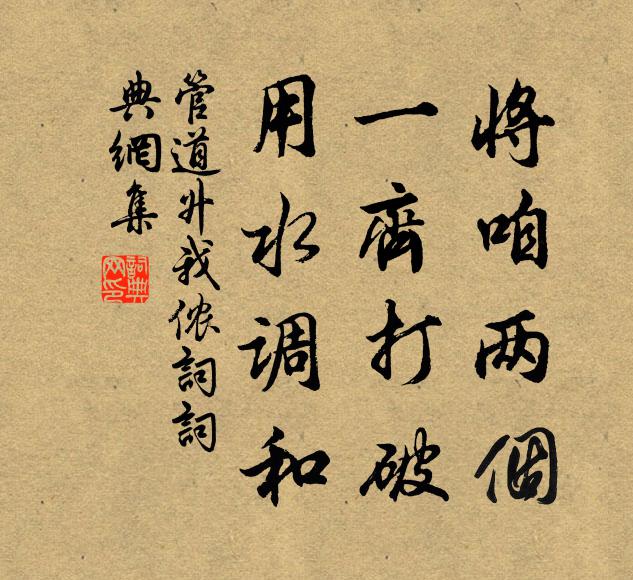 將咱两個
一齊打破
用水调和
管道升我侬詞詞
典網集
詞典
网印